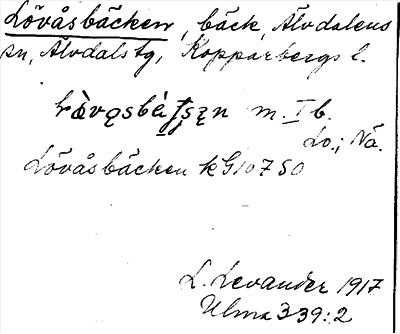 Lövåsbäcken, bäck, Älvdalens
sn, Älvdals tg, Kopparbergs l.
m. I b.
Lo.; Nä.
Lövåsbäcken kG 10750
L. Levander 1917
Ulma 339:2